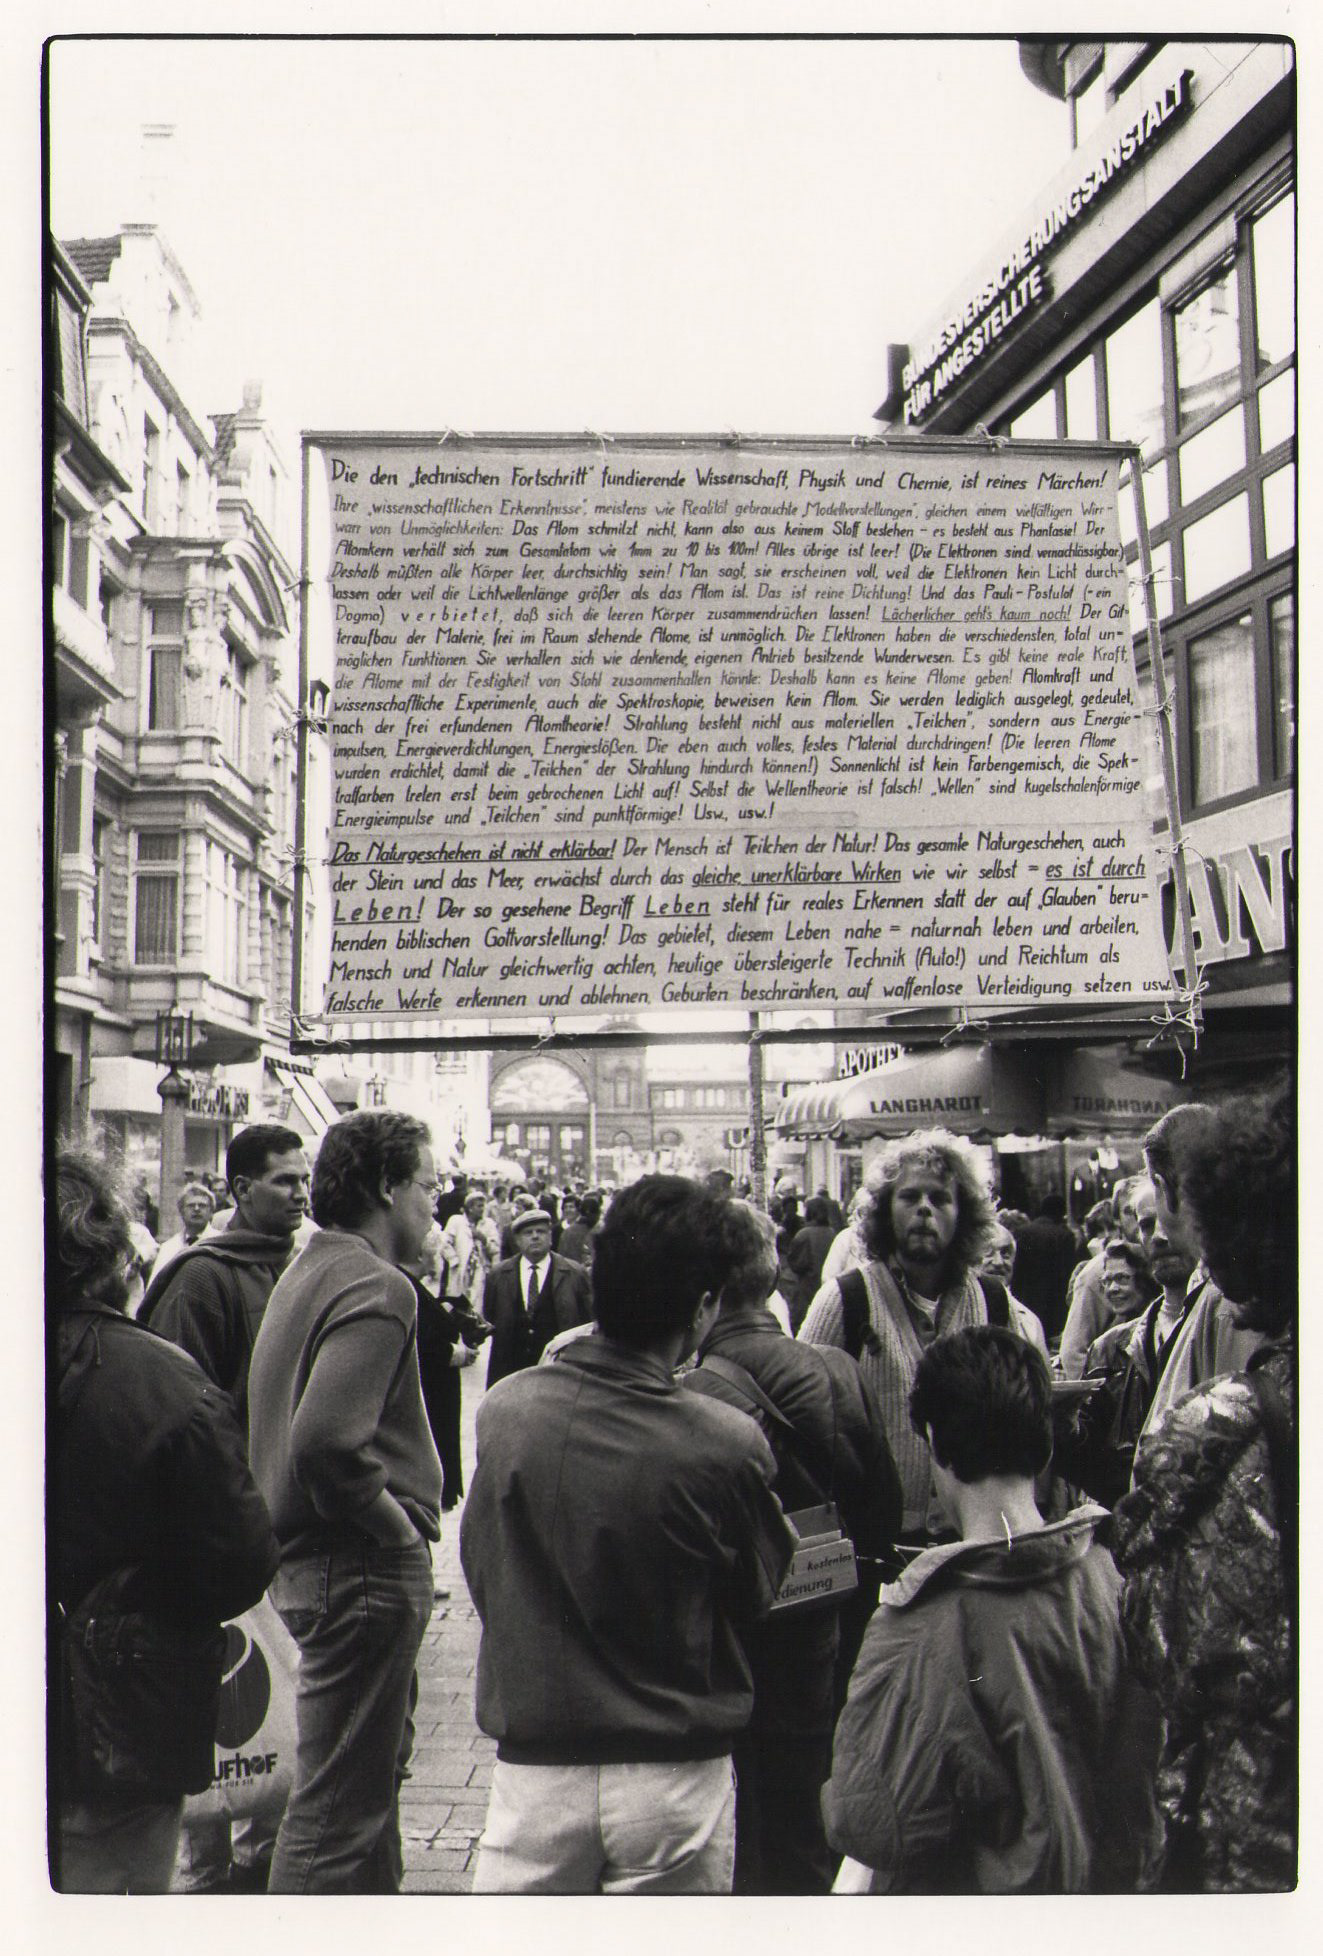 BUNDESVERSICHERUNGSANSTALT
FÜR ANGESTELLTE
Die den „technischen Fortschritt" fundierende Wissenschaft, Physik und Chemie, ist reines Märchen!
Ihre „wissenschaftlichen Erkenntnisse", meistens wie Realität gebrauchte „Modellvorstellungen", gleichen einem vielfältigen Wirr-
warr von Unmöglichkeiten: Das Atom schmilzt nicht, kann also aus keinem Stoff bestehen - es besteht aus Phantasie! Der
Atomkern verhält sich zum Gesamtatom wie 1mm zu 10 bis 100m! Alles übrige ist leer! (Die Elektronen sind vernachlässigbar.)
Deshalb müßten alle Körper leer, durchsichtig sein! Man sagt, sie erscheinen voll, weil die Elektronen kein Licht durch-
lassen oder weil die Lichtwellenlänge größer als das Atom ist. Das ist reine Dichtung! Und das Pauli-Postulat (-ein
Dogma) verbietet, daß sich die leeren Körper zusammendrücken lassen! Lächerlicher geht's kaum noch! Der Git-
teraufbau der Materie, frei im Raum stehende Atome, ist unmöglich. Die Elektronen haben die verschiedensten, total un-
möglichen Funktionen. Sie verhalten sich wie denkende, eigenen Antrieb besitzende Wunderwesen. Es gibt keine reale Kraft,
die Atome mit der Festigkeit von Stahl zusammenhalten könnte: Deshalb kann es keine Atome geben! Atomkraft und
wissenschaftliche Experimente, auch die Spektroskopie, beweisen kein Atom. Sie werden lediglich ausgelegt, gedeutet,
nach der frei erfundenen Atomtheorie! Strahlung besteht nicht aus materiellen „Teilchen", sondern aus Energie-
impulsen, Energieverdichtungen, Energiestößen. Die eben auch volles, festes Material durchdringen! (Die leeren Atome
wurden erdichtet, damit die „Teilchen" der Strahlung hindurch können!) Sonnenlicht ist kein Farbengemisch, die Spek-
tralfarben treten erst beim gebrochenen Licht auf! Selbst die Wellentheorie ist falsch! „Wellen" sind kugelschalenförmige
Energieimpulse und „Teilchen" sind punktförmige! Usw., usw.!
Das Naturgeschehen ist nicht erklärbar! Der Mensch ist Teilchen der Natur! Das gesamte Naturgeschehen, auch
der Stein und das Meer, erwächst durch das gleiche, unerklärbare Wirken wie wir selbst = es ist durch
Leben! Der so gesehene Begriff Leben steht für reales Erkennen statt der auf „Glauben" beru-
henden biblischen Gottvorstellung! Das gebietet, diesem Leben nahe = naturnah leben und arbeiten,
Mensch und Natur gleichwertig achten, heutige übersteigerte Technik (Auto!) und Reichtum als
falsche Werte erkennen und ablehnen, Geburten beschränken, auf waffenlose Verteidigung setzen usw.
APOTHEK
LANGHARDT
LANGHARDT
kostenlos
edienung
UFHOF